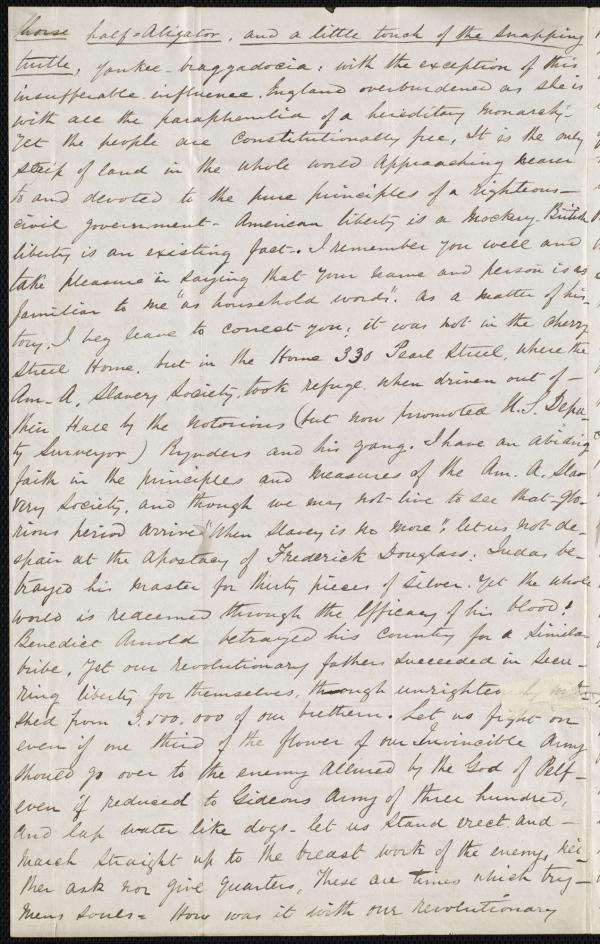 horse half=Aligator, and a little touch of the snapping
turtle, yankee-braggadocia: with the exception of this
insufferable influence. England overburdened as she is
with all the paraphernalia of a hereditary monarchy-
Yet the people are constitutionally free, It is the only
strip of land in the whole world approaching nearer
to and devoted to the pure principles of a righteous-
civil government- American liberty is a mockery-British
liberty is an existing fact-. I remember you well and
take pleasure in saying that your name and person is as
familiar to me "as household words". As a matter of his-
tory, I beg leave to correct you; it was not in the cherry
Street Home, but in the Home 330 Pearl Street, where the
Am-A, Slavery Society, took refuge when driven out of-
their Hall by the notorious (but now promoted U.S. Depu-
ty Surveyor) Rynders and his gang. I have an abiding
faith in the principles and measures of the Am. A. Sla-
very Society, and though we may not live to see that-glo-
rious period arrive "When slavery is no more", let us not-de-
spair at the apostacy of Frederick Douglass: Judas be-
trayed his master for thirty pieces of silver. Yet the whole
world is redeemed through the Efficacy of his blood!
Benedict Arnold betrayed his country for a similar
bribe, yet our revolutionary fathers succeeded in secu-
ring liberty for themselves, though
shed from 3.500,000 of our brethern. Let us fight on
even if one third of the flower of our Invincible Army
should go over to the enemy allured by the God of Pelf-
even if reduced to Gideons Army of three hundred,
and lap water like dogs- let us stand erect and-
march straight up to the breast work of the enemy, nei-
ther ask nor give quarters, These are times which try-
mens souls= How was it with our revolutionary